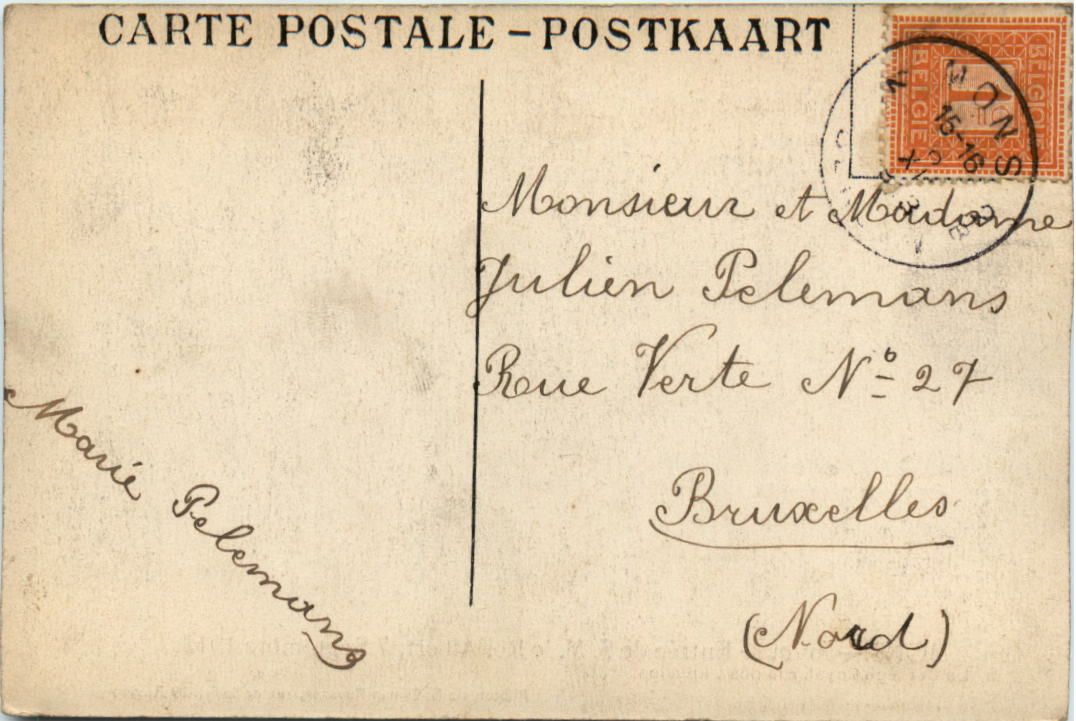 CARTE POSTALE – POSTKAART
BELGIQUE
1
BELGIË
MONS
15-16
Monsieur et Madame
Julien Pelemans
Rue Verte Nº 27
Bruxelles
(Nord)
Marie Pelemans